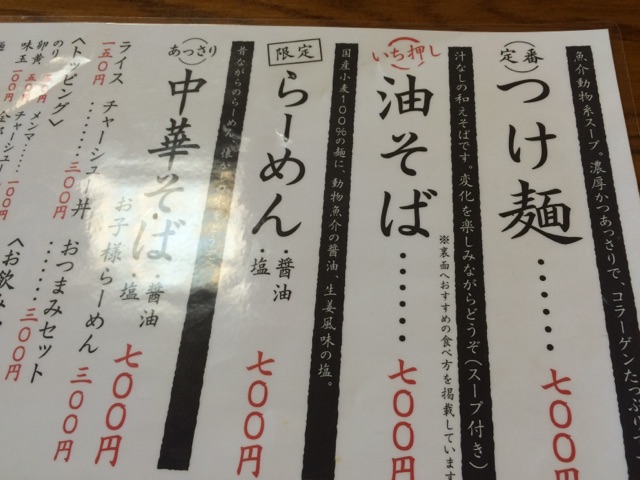 魚介動物系スープ。濃厚かつあっさりで、コラーゲンたっぷり
定番
つけ麺……七〇〇円
汁なしの和えそばです。変化を楽しみながらどうぞ(スープ付き)
いち押し
油そば……七〇〇円
※裏面へおすすめの食べ方を掲載しています
国産小麦100%の麺に、動物魚介の醤油、生姜風味の塩。
限定
らーめん・醤油・塩 七〇〇円
昔ながらのらーめん
あっさり
中華そば・醤油・塩 七〇〇円
お子様らーめん 三〇〇円
ライス 一五〇円
チャーシュー丼 三〇〇円
おつまみセット……三〇〇円
〈トッピング〉
のり
卵黄 五〇円
メンマ……
味玉 100円
チャーシュー 100円
〈お飲み